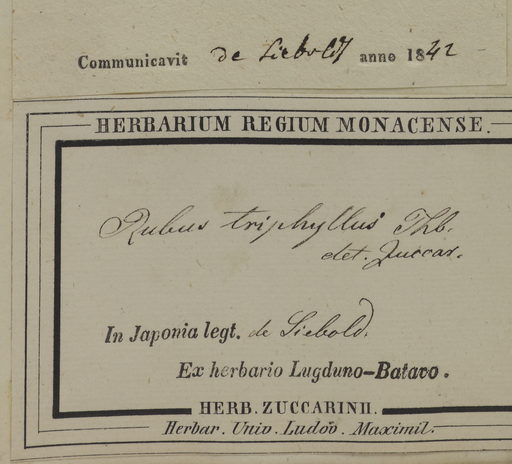 Communicavit de Siebold anno 1842
HERBARIUM REGIUM MONACENSE.
Rubus triphyllus Thb.
det. Zuccar.
In Japonia legt. de Siebold.
Ex herbario Lugduno-Batavo.
HERB. ZUCCARINII.
Herbar. Univ. Ludov. Maximil.